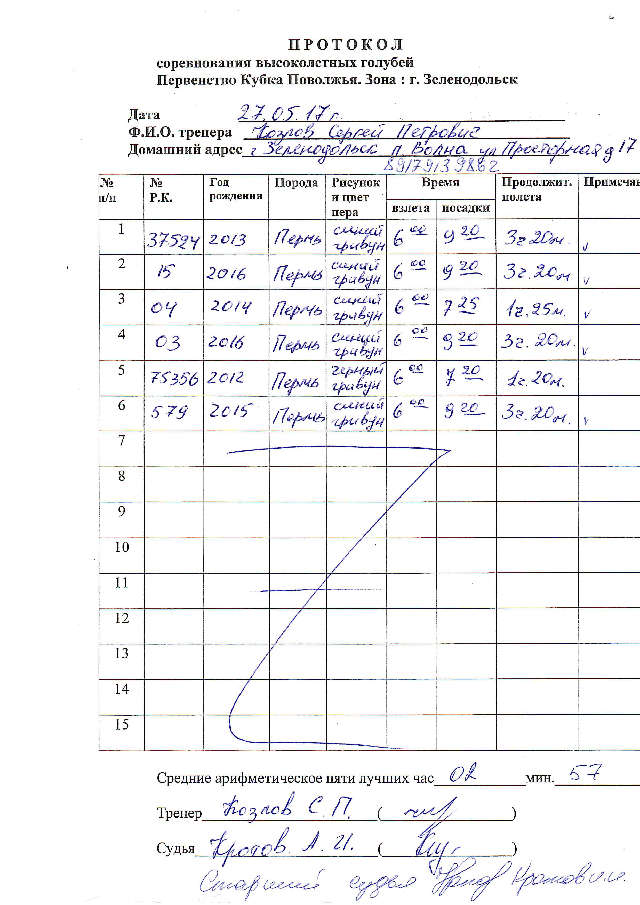 П Р О Т О К О Л
соревнования высоколетных голубей
Первенство Кубка Поволжья. Зона : г. Зеленодольск
Дата 27.05.17г.
Ф.И.О. тренера Козлов Сергей Петрович
Домашний адрес г Зеленодольск п. Волна ул Просторная д 17
89179139862
№ п/п № Р.К. Год рождения Порода Рисунок и цвет пера Время взлета посадки Продолжит. полета Примечан
1 37524 2013 Пермь синий гривун 6 00 9 20 3ч.20м. v
2 15 2016 Пермь синий гривун 6 00 9 20 3ч.20м v
3 04 2014 Пермь синий гривун 6 00 7 25 1ч.25м. v
4 03 2016 Пермь синий гривун 6 00 9 20 3ч.20м. v
5 75356 2012 Пермь черный гривун 6 00 7 20 1ч.20м.
6 579 2015 Пермь синий гривун 6 00 9 20 3ч.20м. v
7
8
9
10
11
12
13
14
15
Средние арифметическое пяти лучших час 02 мин. 57
Тренер Козлов С.П. ( )
Судья Кротов. А.И. ( )
Старший судья